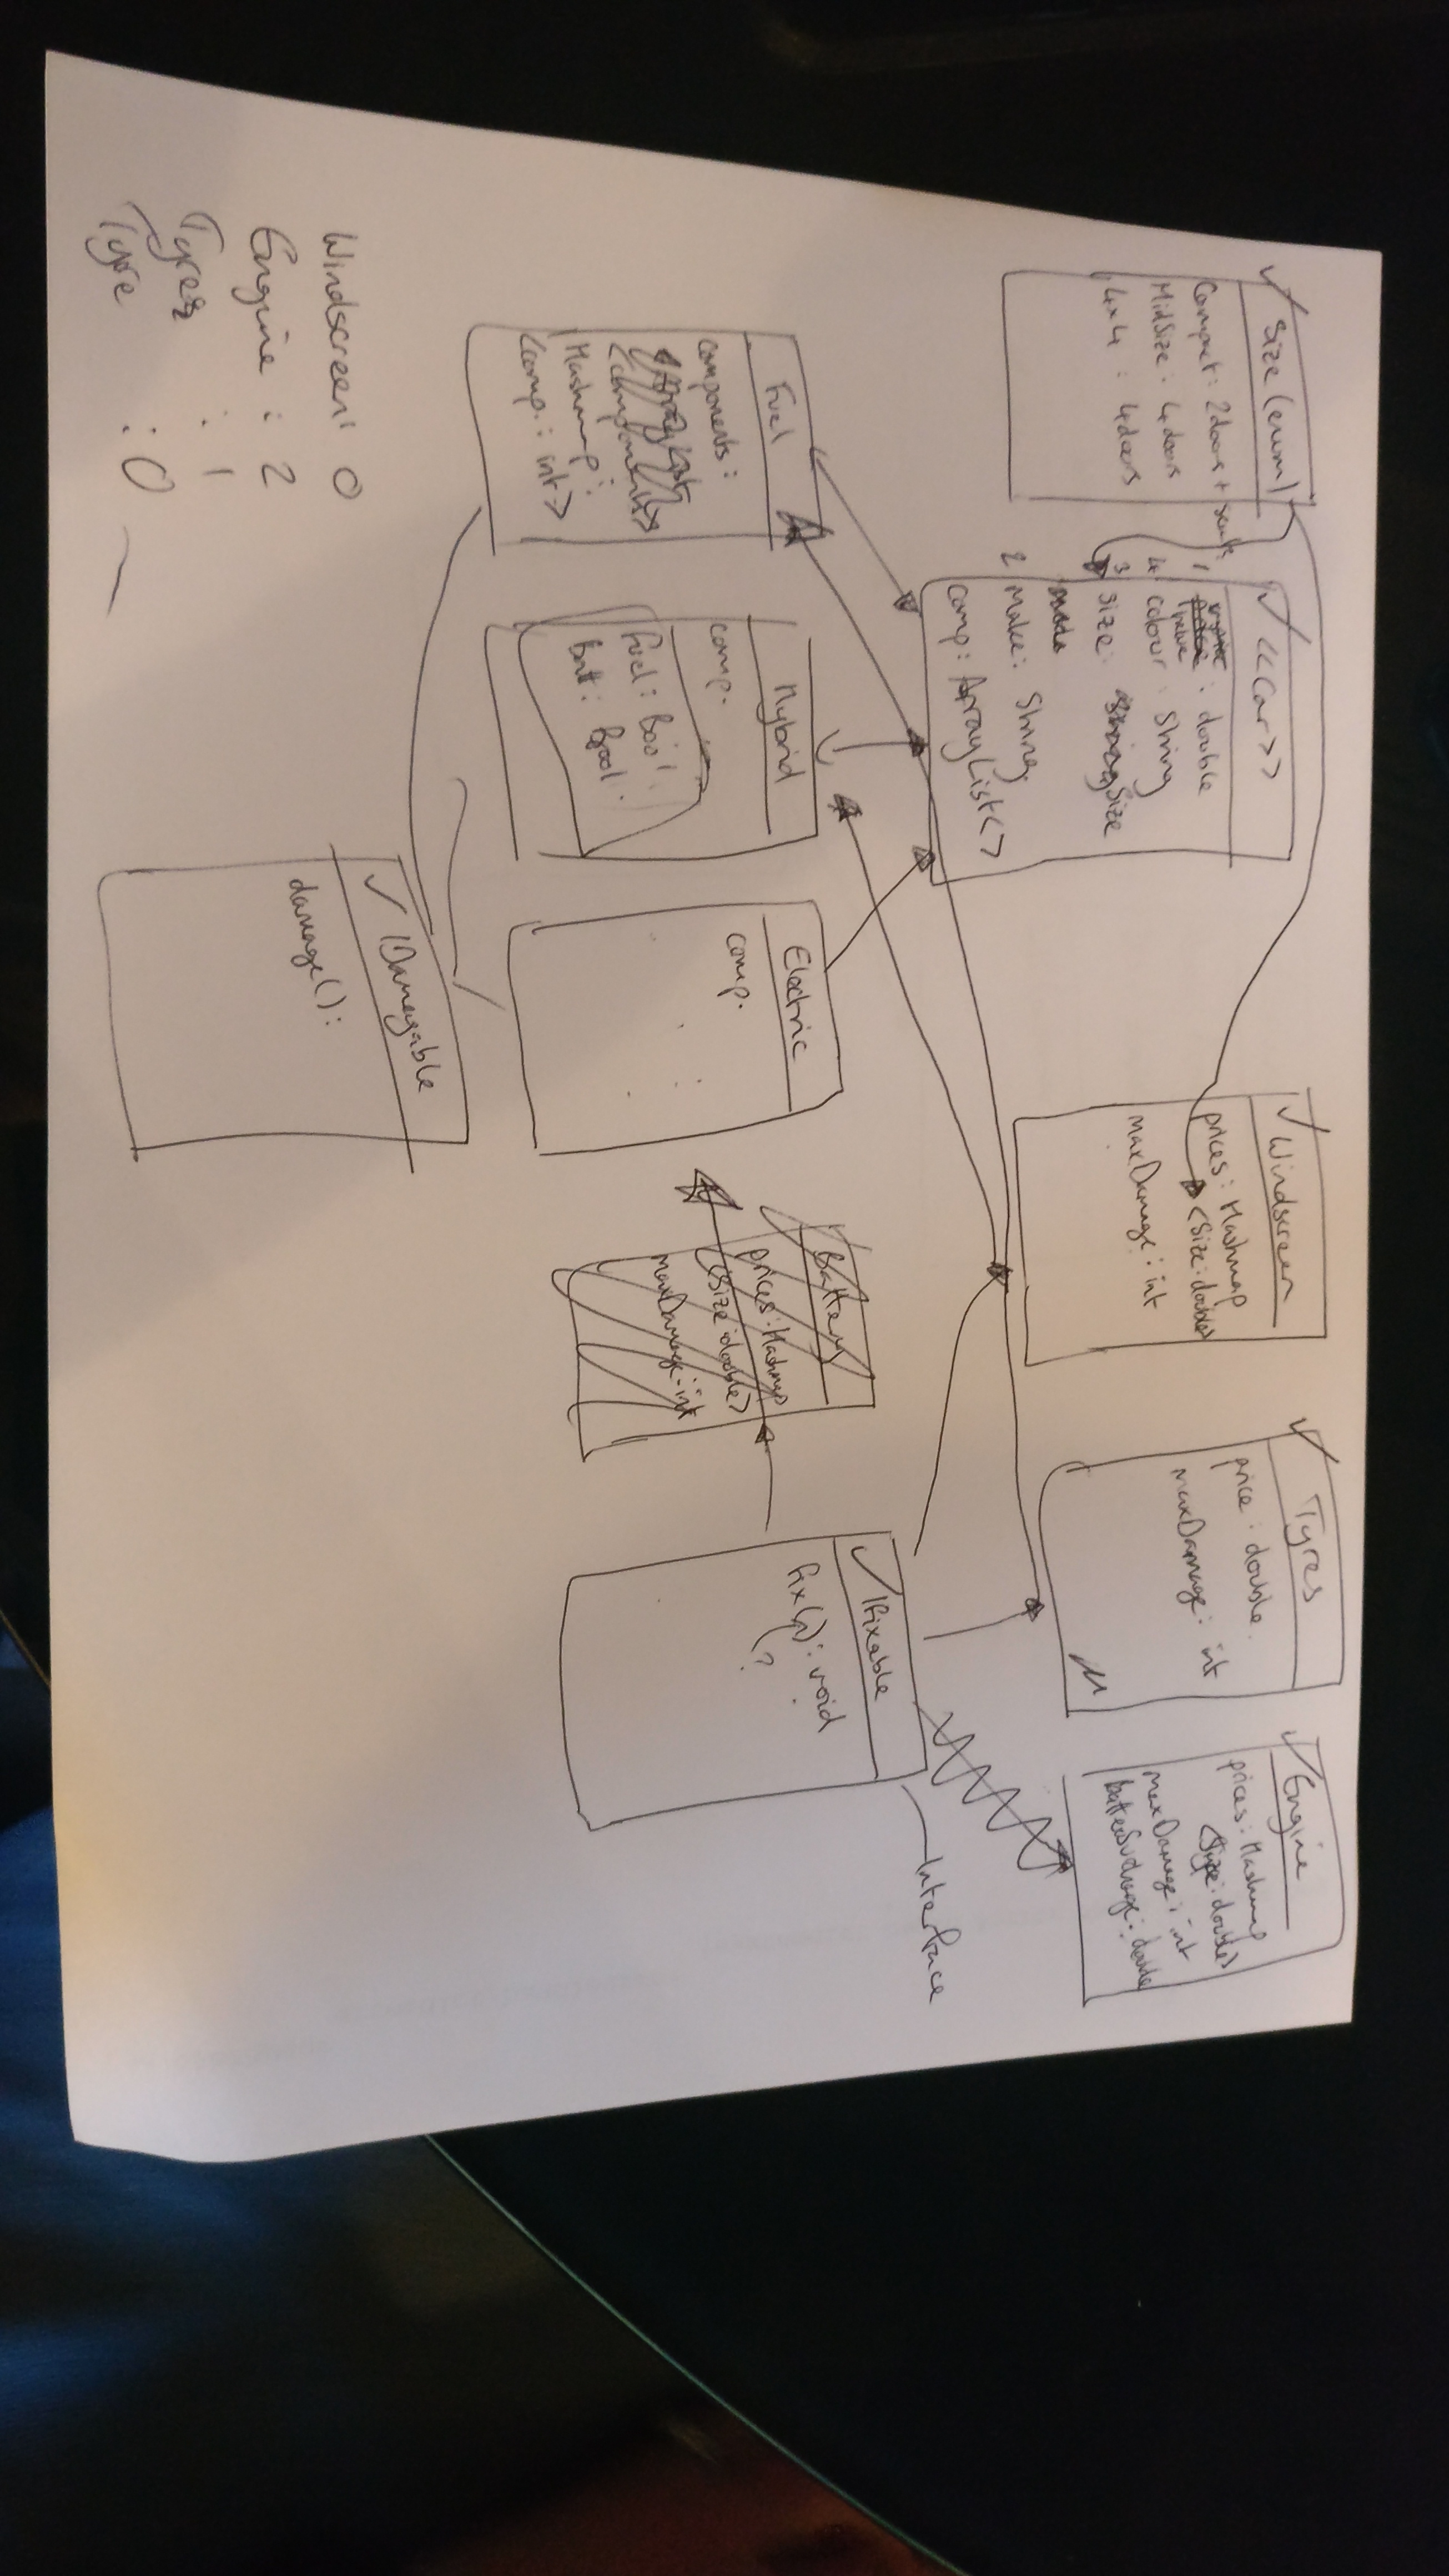 Size (enum)
Compact: 2doors +
MidSize: 4doors
4x4 : 4doors
<<Car>>
1 : double
4 colour : String
3 size: Size
2 Make: String
comp: ArrayList<>
Windscreen
prices: Hashmap
<Size:double>
maxDamage: int
Tyres
price: double
maxDamage: int
Engine
prices: Hashmap
<Size:double>
maxDamage: int
Fuel
components:
Hashmap:
<comp: int>
Hybrid
comp.
Fuel: Bool
Batt: Bool
Electric
comp.
Battery
prices: Hashmap
<Size:double>
maxDamage: int
IFixable
fix(n): void
?
Interface
IDamagable
damage():
Windscreen: 0
Engine: 2
Tyres : 1
Tyre : 0